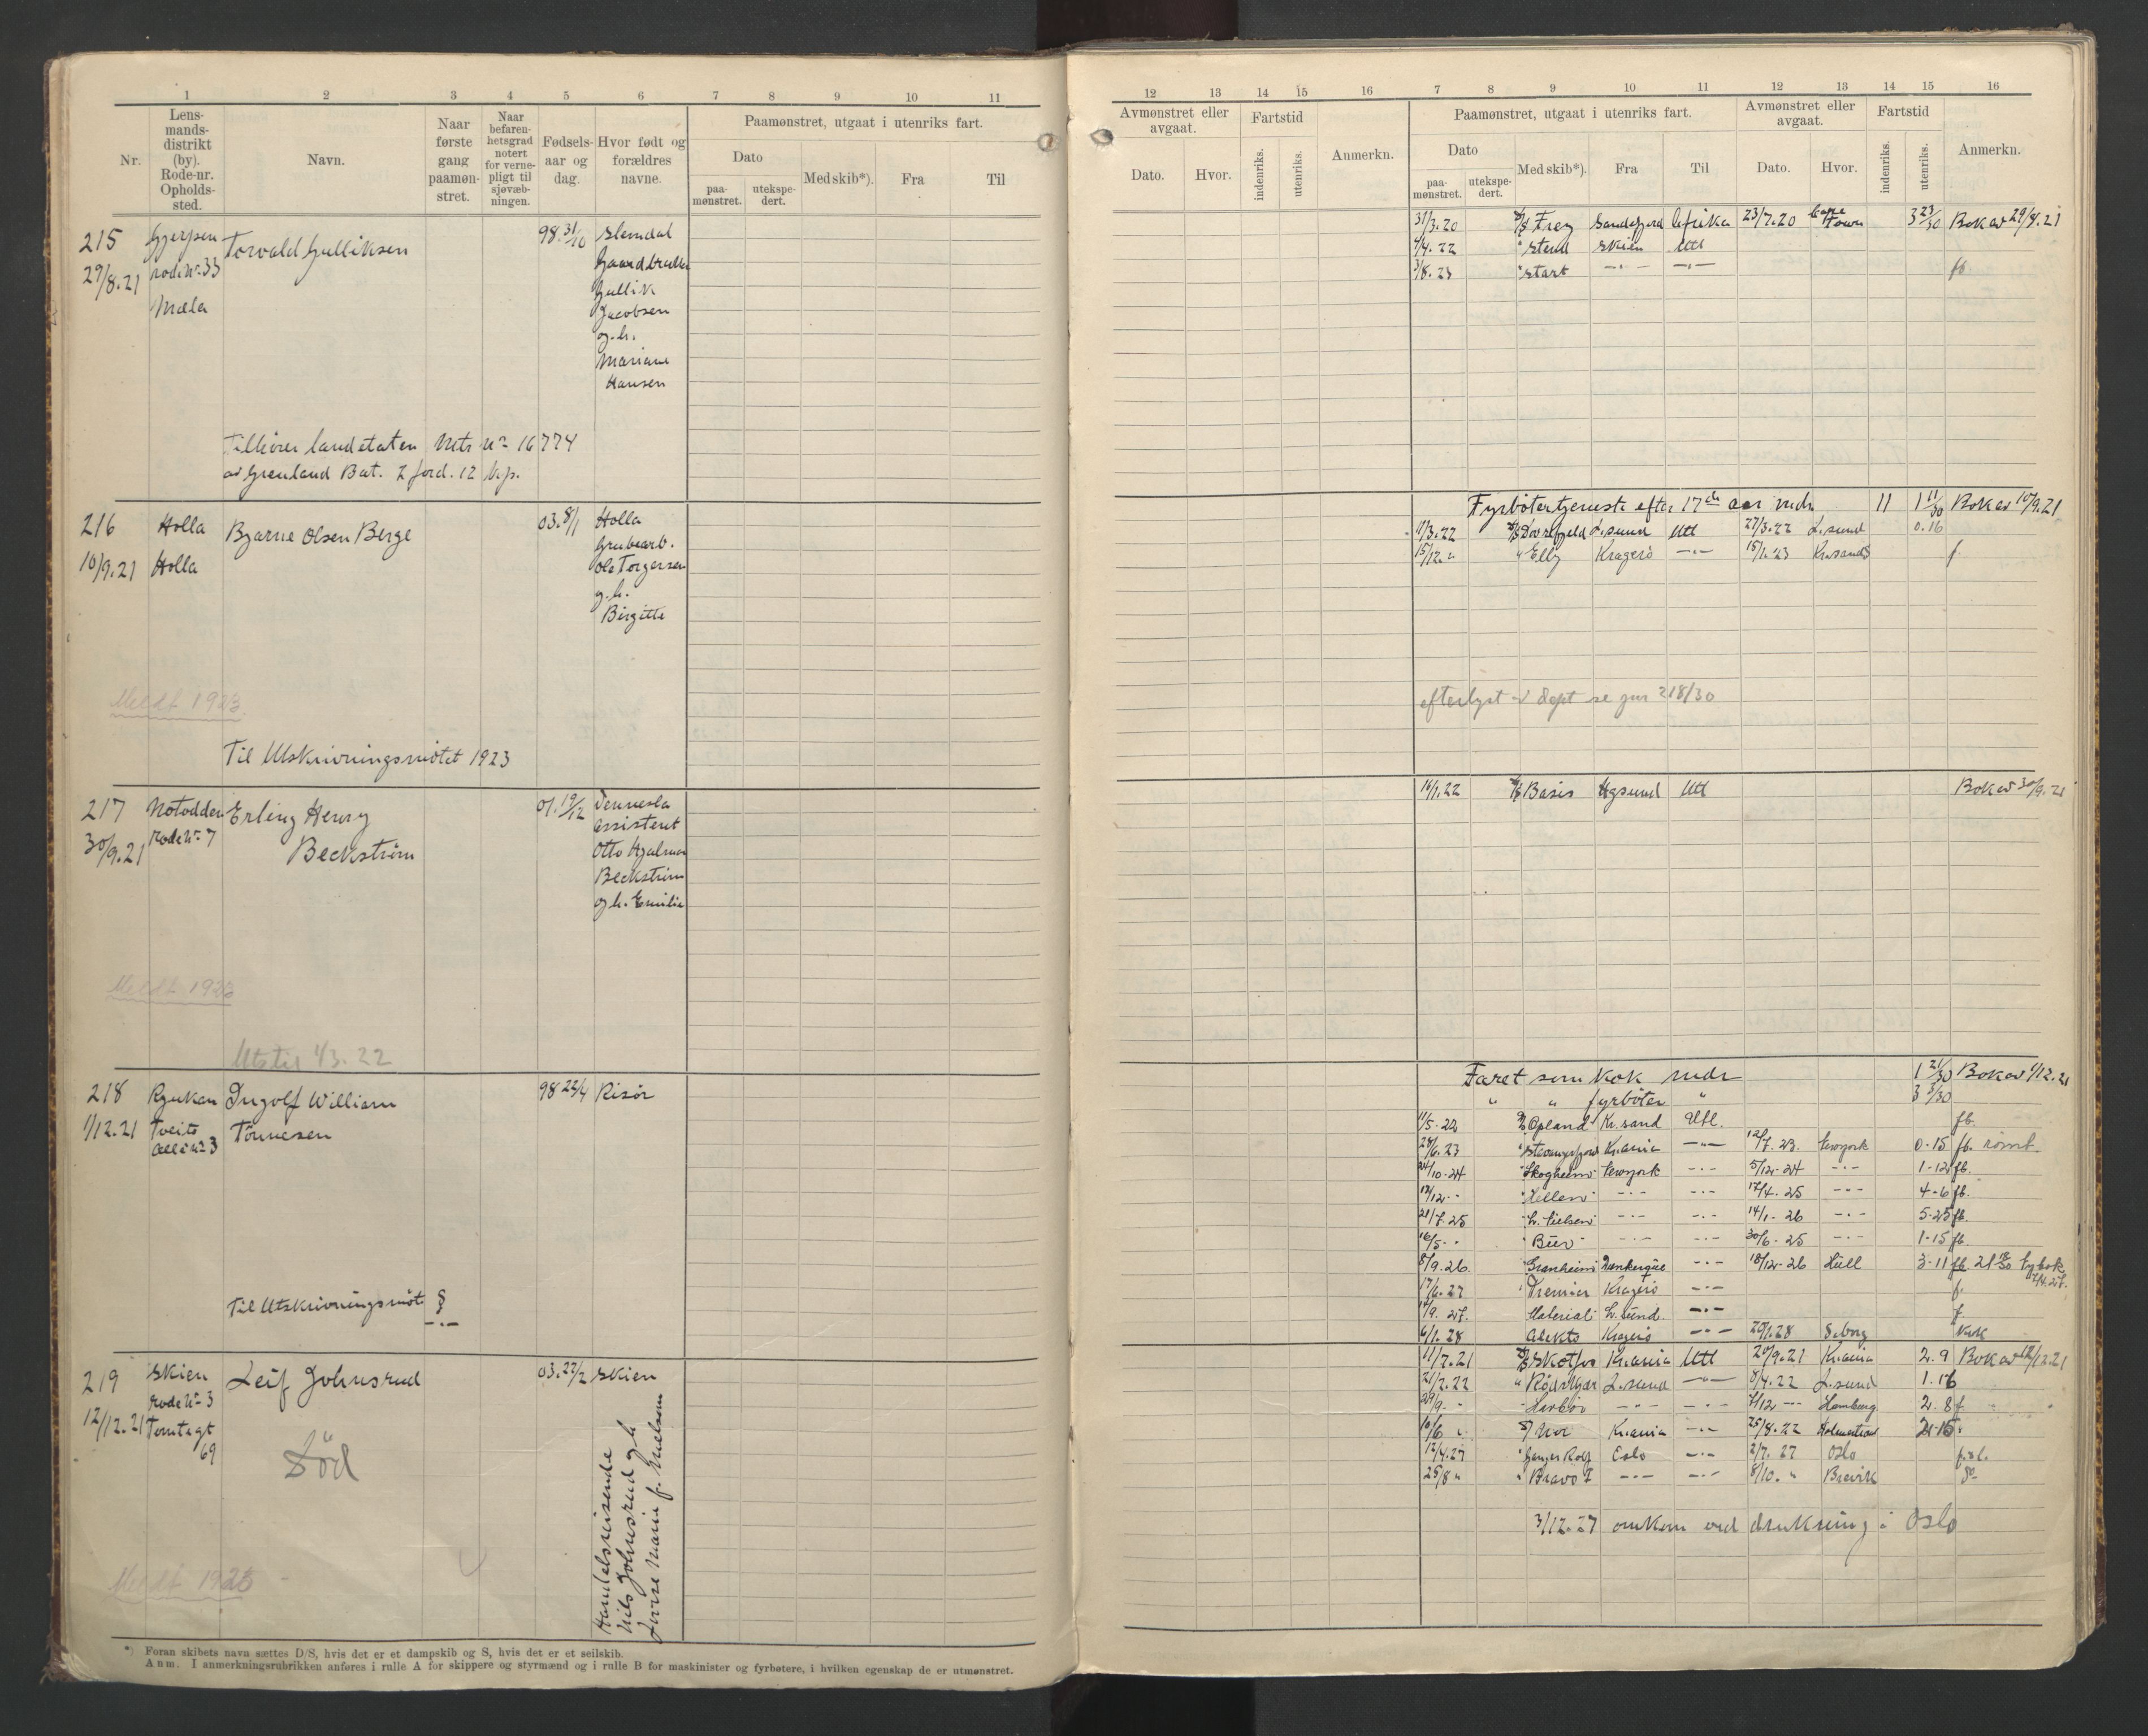 1 2 3 4 5 6 7 8 9 10 11
Nr.
Lens-
mands-
distrikt
(by).
Rode-nr.
Opholds-
sted.
Navn.
Naar
første
gang
paamøn-
stret.
Naar
befaren-
hetsgrad
notert
for verne-
pligt til
sjøvæb-
ningen.
Fødsels-
aar og
dag.
Hvor født og
forældres
navne.
Paamønstret, utgaat i utenriks fart.
Dato
paa-
mønstret.
utekspe-
dert.
Med skib*).
Fra
Til
215 Gjerpen Torvald Gulliksen 98. 31/10
29/8.21 rode nr. 33
Mæla
Gullik
Jacobsen
og h.
Mariane
Hansen
Tilhører landetaten Mts nr 16774
av Grenland Bat. 2 ford. 12 kp.
216 Holla Bjarne Olsen Berge 03. 8/1 Holla
10/9.21 Holla
Grubearb.
Ole Torgersen
g. h.
Birgitte
Meldt 1923
Til Utskrivningsmötet 1923
217 Notodden Erling Henry 01. 19/12 Vennesla
30/9.21 rode nr 7 Beckström
assistent
Otto Hjalmar
Beckström
og h. Emilie
Meldt 1923
218 Rjukan Ingolf William 98 22/4 Risör
1/12.21 Tveits Tönnesen
Til Utskrivningsmöt §
219 Skien Leif Johnsrud 03. 27/2 Skien
rode nr 3
12/12.21
69
Död
Handelsreisende
Nils Johnsrud og h
Meldt 1925
*) Foran skibets navn sættes D/S, hvis det er et dampskib og S, hvis det er et seilskib.
Anm. I anmerkningsrubrikken anføres i rulle A for skippere og styrmænd og i rulle B for maskinister og fyrbøtere, i hvilken egenskap de er utmønstret.
12 13 14 15 16 7 8 9 10 11 12 13 14 15 16
Avmønstret eller
avgaat.
Dato.
Hvor.
Fartstid
indenriks.
utenriks.
Anmerkn.
Paamønstret, utgaat i utenriks fart.
Dato
paa-
mønstret.
utekspe-
dert.
Med skib*).
Fra
Til
Avmønstret eller
avgaat.
Dato.
Hvor.
Fartstid
indenriks.
utenriks.
Anmerkn.
31/3.20 Frey Sandefjord Afrika 23/7.20 Cape Town 3 23/30 Bok av 29/8.21
4/4.22 " Stend Skien Utl
3/8.23 " Start -"- -"- fb
Fyrbötertjeneste efter 17de aar mdr 11 1 11/30 Bok av 10/9.21
11/3.22 Dovrefjeld L.sund Utl 27/3.22 L.sund 0.16
15/12 " " Elly Kragerö -"- 15/1.23 Kr.sand f.
efterlyst
14/1.22 Basis Utl Bok av 30/9.21
Faret som kok mdr 1 21/30 Bok av 1/12.21
" " fyrböter " 3 3/30
11/5.22 Opland Kr.sand Utl. fb.
28/6.23 Stavangerfjord Kr.ania -"- 12/7.23. Newyork 0-15 fb. römt.
24/10-24 Skogheim Newyork -"- 5/12-24 -"- 1-12 fb.
-"- -"- 17/4-25 -"- 4-6 fb.
21/7.25 -"- -"- 14/1-26 -"- 5-25 fb.
16/5 " -"- -"- 30/6-25 -"- 1-15 fb
8/9.26 Granheim Dunkerque -"- 18/12-26 Hull 3-11 fb.
17/6.27 Premier Kragerö -"- f.
-"- f.
6/1.28 Alekto Kragerö -"- 20/1.28 S.borg kok
11/7.21 Skotfos Kr.ania Utl 20/9.21 Kr.ania 2.9 Bok av 12/12.21
21/2.22 L.sund -"- 8/4.22 L.sund 1.16
-"- -"- Hamburg 2.8 f
10/6 " Nor Kr.ania -"- 25/8.22 Holmestrand
12/4.27 Ganger Rolf Oslo -"- 2/7.27 Oslo
25/8 " " Bravo I -"- -"- 8/10. " Brevik
3/12.27 omkom ved drukning i Oslo